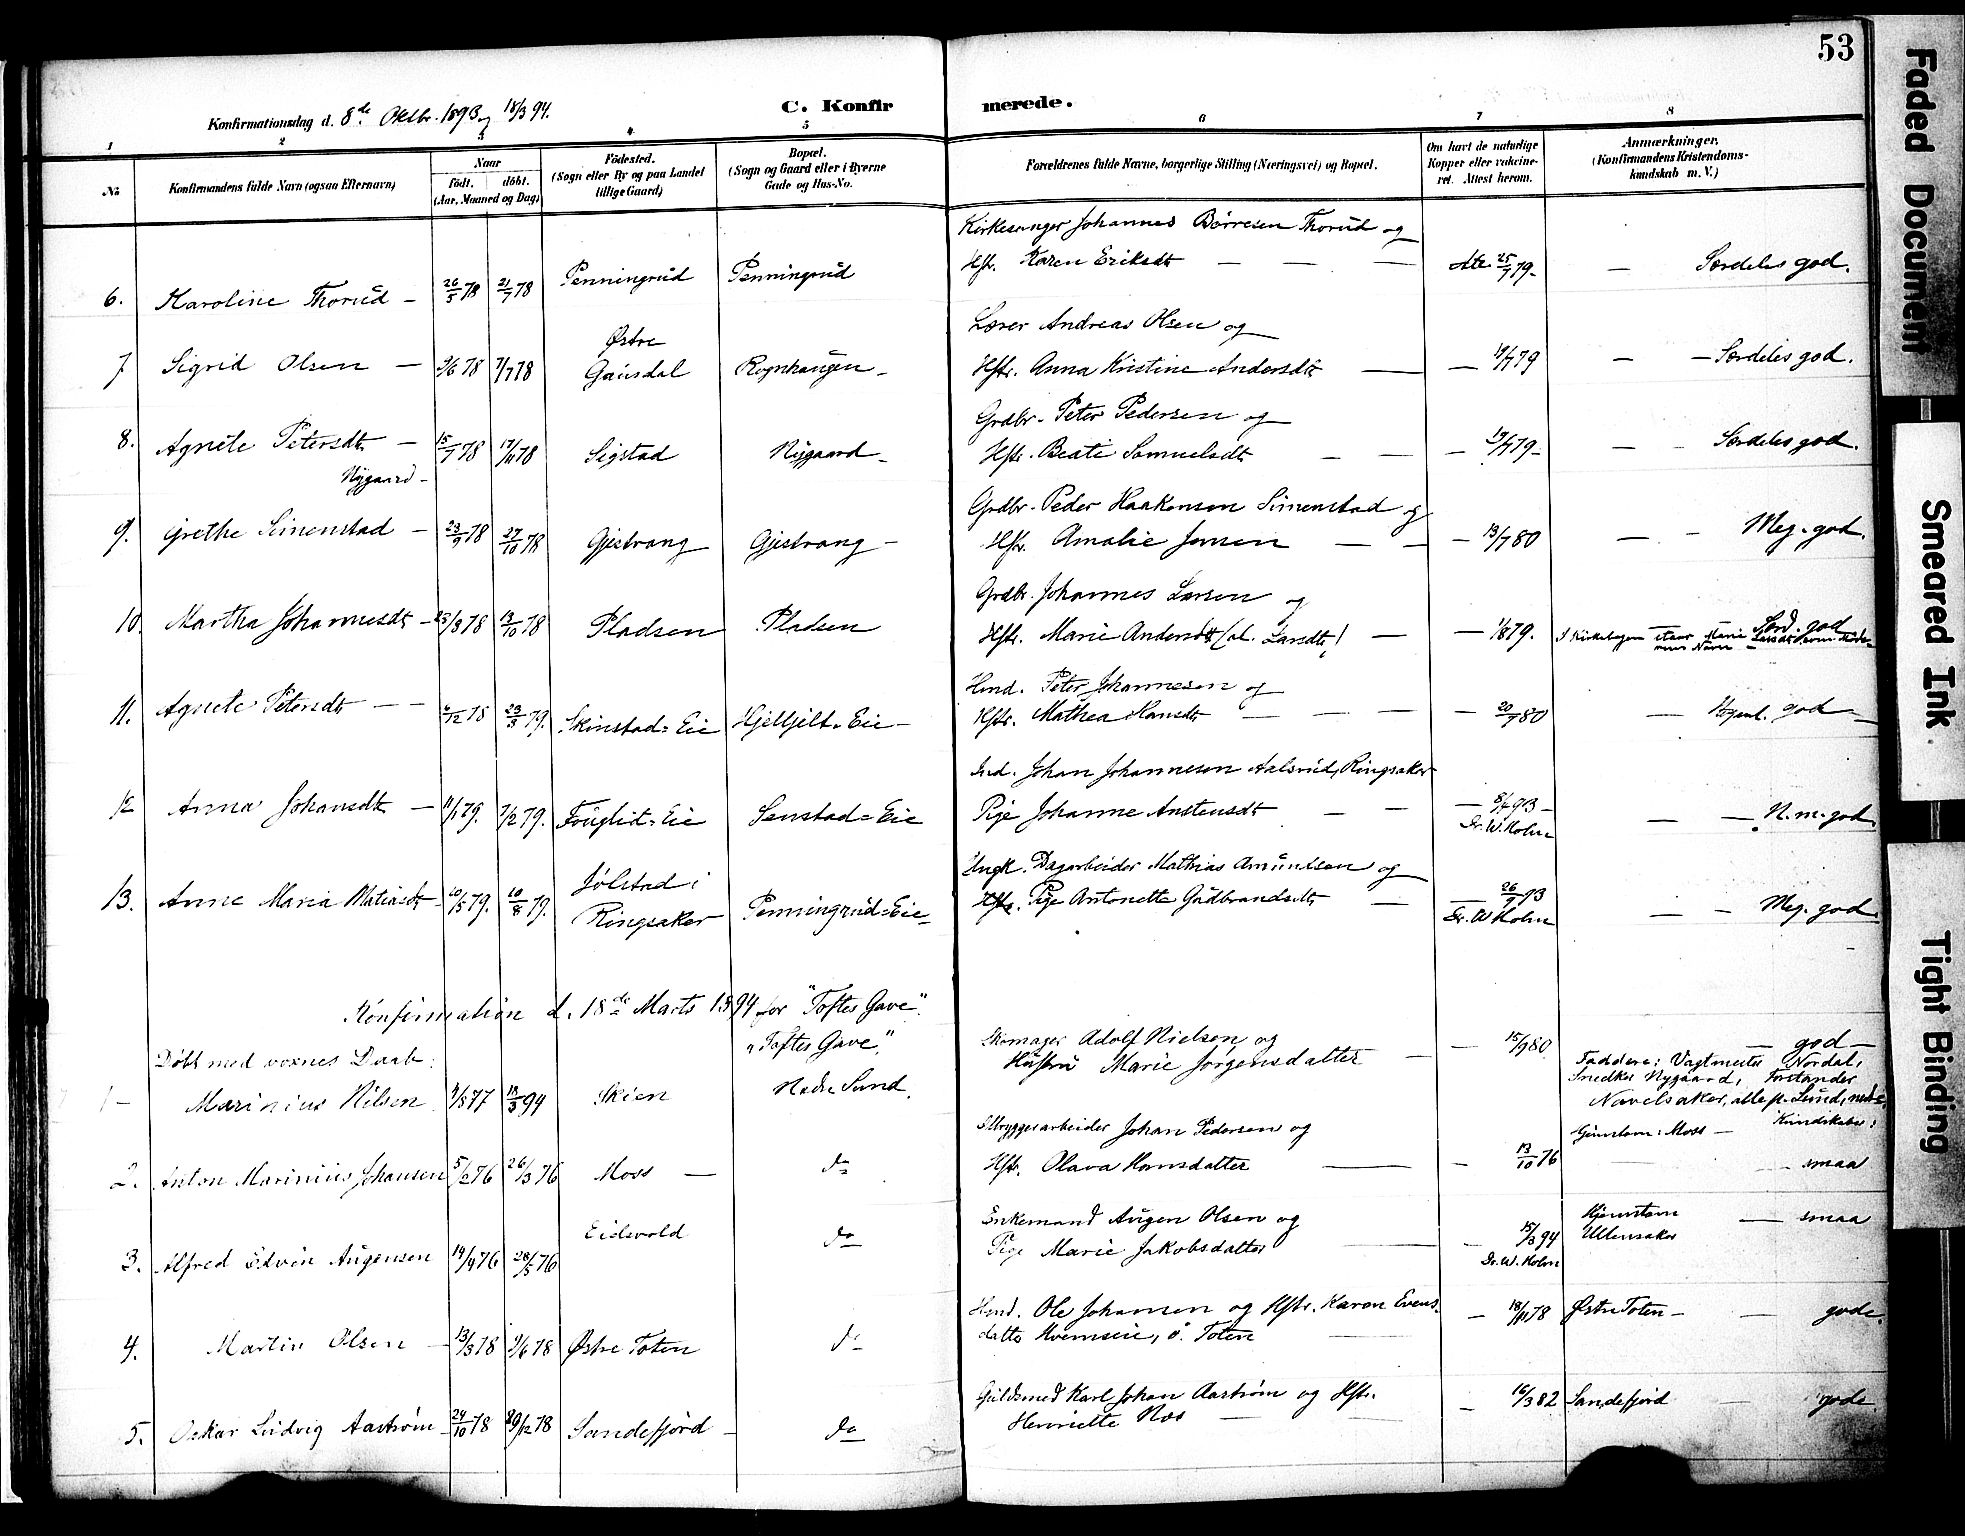 53
Konfirmationsdag d. 8de Oktbr. 1893 og 18/3 94.
C. Konfirmerede.
1 2 3 4 5 6 7 8
No
Konfirmandens fulde Navn (ogsaa Efternavn)
Naar
födt. döbt.
(Aar, Maaned og Dag)
Födested.
(Sogn eller By og paa Landet tillige Gaard)
Bopæl.
(Sogn og Gaard eller i Byerne Gade og Hus-No.
Forældrenes fulde Navne, borgerlige Stilling (Næringsvei) og Bopæl.
Om havt de naturlige Kopper eller vakcineret. Attest herom.
Anmærkninger.
(Konfirmandens Kristendomskundskab m. V.)
Kirkesanger Johannes Børresen Thorud og
6. Karoline Thorud – 26/5 78 21/7 78 Penningrud Penningrud Hstr. Karen Eriksdt. — — — Atte. 25/7 79. — Særdeles god.
Lærer Andreas Olsen og
7 Sigrid Olsen — 3/6 78 7/7 78 Østre Gausdal Rognhaugen – Hstr. Anna Kristine Andersdt. — — 19/7 79 — — Særdeles god.
Grdbr. Peter Pedersen og
8. Agnete Petersdt. — Nygaard – 15/7 78 17/11 78 Sigstad Nygaard – Hstr. Beate Samuelsdt. — — — 19/7 79 – — Særdeles god.
Grdbr. Peder Haakensen Simenstad og
9. Grethe Simenstad – 23/9 78 27/10 78 Gjestvang Gjestvang – Hstr. Amalie Jensen — — — 13/7 80 — – Meg. god.
Grdbr. Johannes Larsen og
10. Martha Johannesdt. – 25/8 78 13/10 78 Pladsen Pladsen Hstr. Marie Andersdt. (al. Larsdt.) — — 1/8 79. Særd. god
I Kirkebogen staar Marie Larsdt. som Moderens Navn
Hmd. Peter Johannesen og
11. Agnete Petersdt. – – 6/12 78 23/3 79. Skinstad-Eie Hjelhjelt-Eie – Hstr. Mathea Hansdt. — — — — 20/7 80 — god —
Ind. Johan Johannesen Aalsrud, Ringsaker
12 Anna Johansdt. — 11/1 79. 7/2 79. Fuglid-Eie Senstad-Eie Pige Johanne Anstensdt. — — — 8/4 93 – Dr. W. Holm — — N. m. god.
Ungk. Dagarbeider Mathias Amundsen og
13. Anne Maria Matiasdt. 20/5 79. 10/8 79. Jølstad i Ringsaker Penningrud-Eie – Hstr. Pige Antonette Gudbrandsdt. — — 26/9 93 Dr. W Holm — – Meg. god.
Konfirmation d. 18de Marts 1894 for "Toftes Gave".
Døbt med voxnes Daab:
1 – Marinius Nilsen 4/5 77 18/3 94 Skien "Toftes Gave". Nedre Sund. Skomager Adolf Nielsen og Hustru Marie Jørgensdatter — — 15/9 80 — god —
Faddere: Vagtmester Nordal, Snedker Nygaard, Forstander Navelsaker, alle p. Sund, nedre
Kundskaber:
Ølbryggerarbeider Johan Pedersen og
2. Anton Marinius Johansen 5/2 76 26/3 76 Moss — do Hstr. Olava Hansdatter — – 13/10 76 Hjemstavn: Moss – — smaa
Enkemand Augen Olsen og
3. Alfred Edvin Augensen 19/4 76 28/5 76 Eidsvold do Pige Marie Jakobsdatter — – 15/3 94 Dr. W. Holm Hjemstavn Ullensaker — smaa
Hmd. Ole Johansen og Hstr. Karen Evens-
4. Martin Olsen — 13/3 78 9/6 78 Østre Toten do datter Kvemseie, ö. Toten — – 18/11 78 Østre Toten – — gode.
Guldsmed Karl Johan Aastrøm og Hstr.
5. Oskar Ludvig Aastrøm – 24/10 78 29/12 78 Sandefjord – do Henriette Næs — — – 16/3 82 Sandefjord — gode
Faded Document
Smeared Ink
Tight Binding